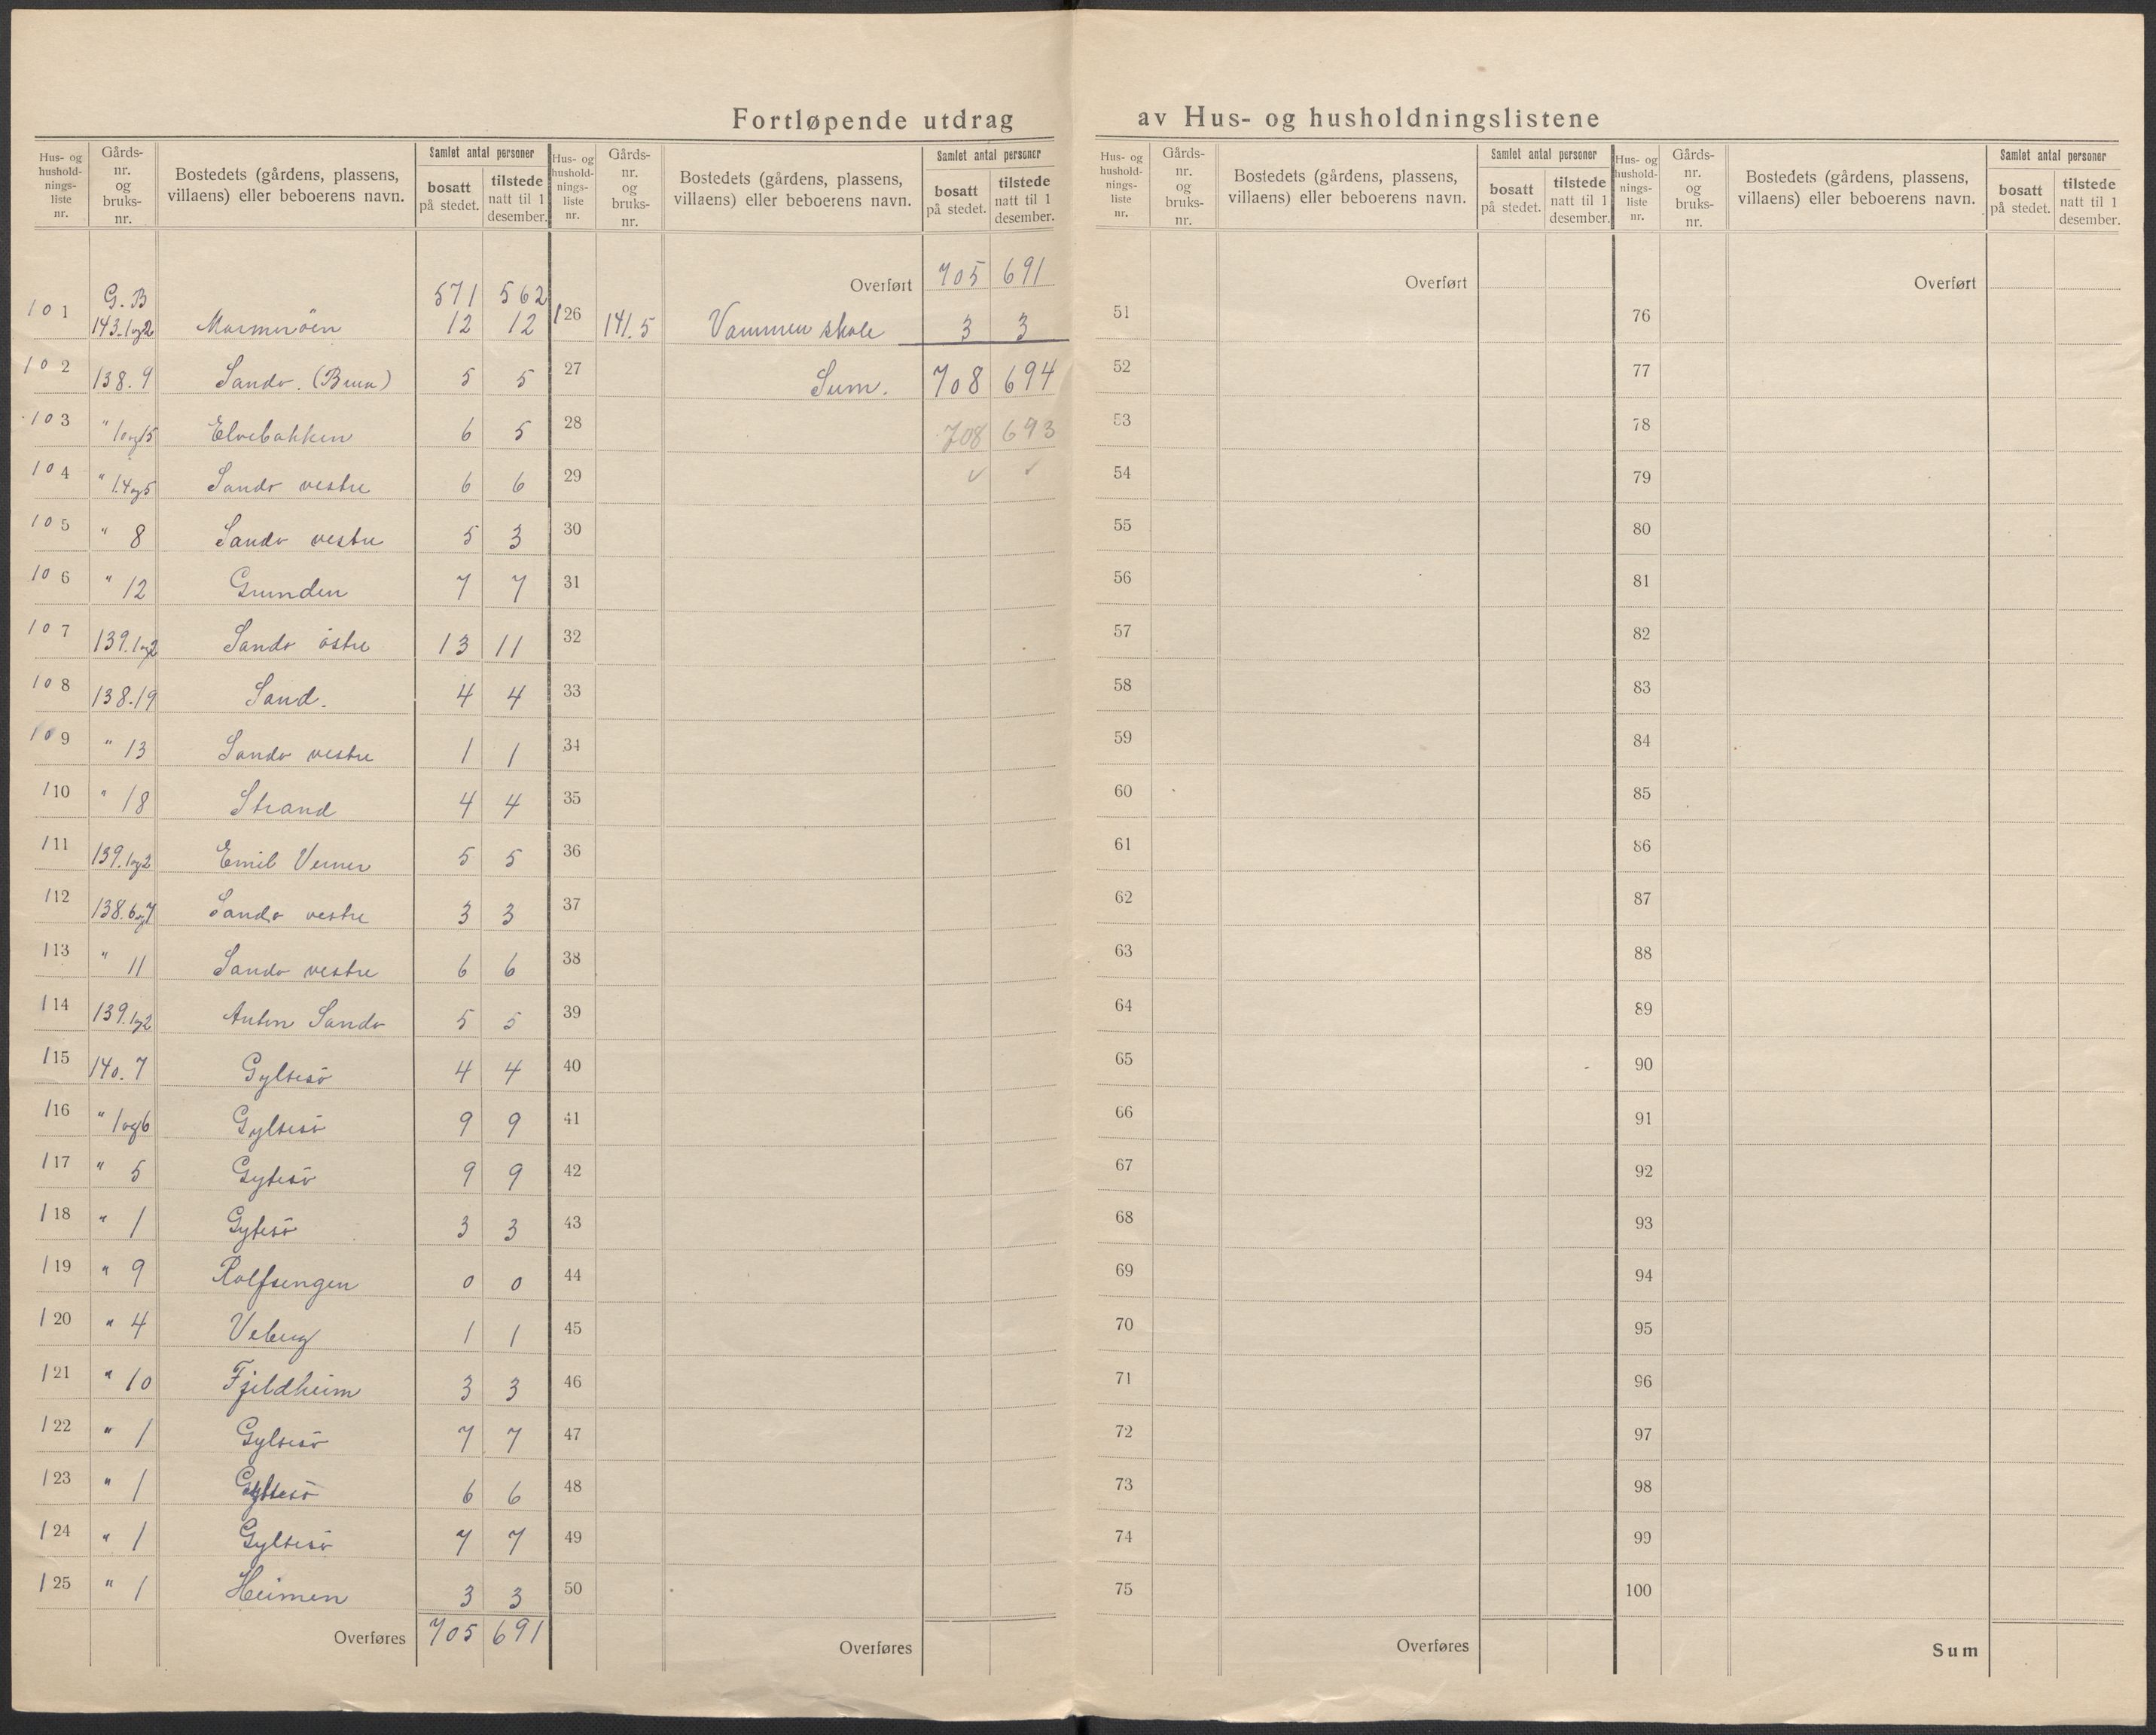 Fortløpende utdrag av Hus- og husholdningslistene
Hus- og hushold-nings-liste nr. Gårds-nr. og bruks-nr. Bostedets (gårdens, plassens, villaens) eller beboerens navn. Samlet antal personer bosatt på stedet. tilstede natt til 1 desember.
G. B 571 562
101 143.1og2 12 12
102 138.9 Sandv. (Brua) 5 5
103 " 1og15 Elvebakken 6 5
104 " 1.4og5 Sandv vestre 6 6
105 " 8 Sandv vestre 5 3
106 " 12 Grunden 7 7
107 139.1og2 Sandv östre 13 11
108 138.19 Sand. 4 4
109 " 13 Sandv vestre 1 1
110 " 18 Strand 4 4
111 139.1og2 Emil Verner 5 5
112 138.6og7 Sandv vestre 3 3
113 " 11 Sandv vestre 6 6
114 139.1og2 Anton Sandv 5 5
115 140.7 Gyltesö 4 4
116 " 1og6 Gyltesö 9 9
117 " 5 Gytesö 9 9
118 " 1 Gytesö 3 3
119 " 9 Rolfsengen 0 0
120 " 4 1 1
121 " 10 Fjeldheim 3 3
122 " 1 Gyltesö 7 7
123 " 1 Gyltesö 6 6
124 " 1 Gyltesö 7 7
125 " 1 Heimen 3 3
Overføres 705 691
Hus- og hushold-nings-liste nr. Gårds-nr. og bruks-nr. Bostedets (gårdens, plassens, villaens) eller beboerens navn. Samlet antal personer bosatt på stedet. tilstede natt til 1 desember.
Overført 705 691
126 141.5 Vammen skole 3 3
27 Sum. 708 694
28 708 693
29 ✓ ✓
30
31
32
33
34
35
36
37
38
39
40
41
42
43
44
45
46
47
48
49
50
Overføres
Hus- og hushold-nings-liste nr. Gårds-nr. og bruks-nr. Bostedets (gårdens, plassens, villaens) eller beboerens navn. Samlet antal personer bosatt på stedet. tilstede natt til 1 desember.
Overført
51
52
53
54
55
56
57
58
59
60
61
62
63
64
65
66
67
68
69
70
71
72
73
74
75
Overføres
Hus- og hushold-nings-liste nr. Gårds-nr. og bruks-nr. Bostedets (gårdens, plassens, villaens) eller beboerens navn. Samlet antal personer bosatt på stedet. tilstede natt til 1 desember.
Overført
76
77
78
79
80
81
82
83
84
85
86
87
88
89
90
91
92
93
94
95
96
97
98
99
100
Sum